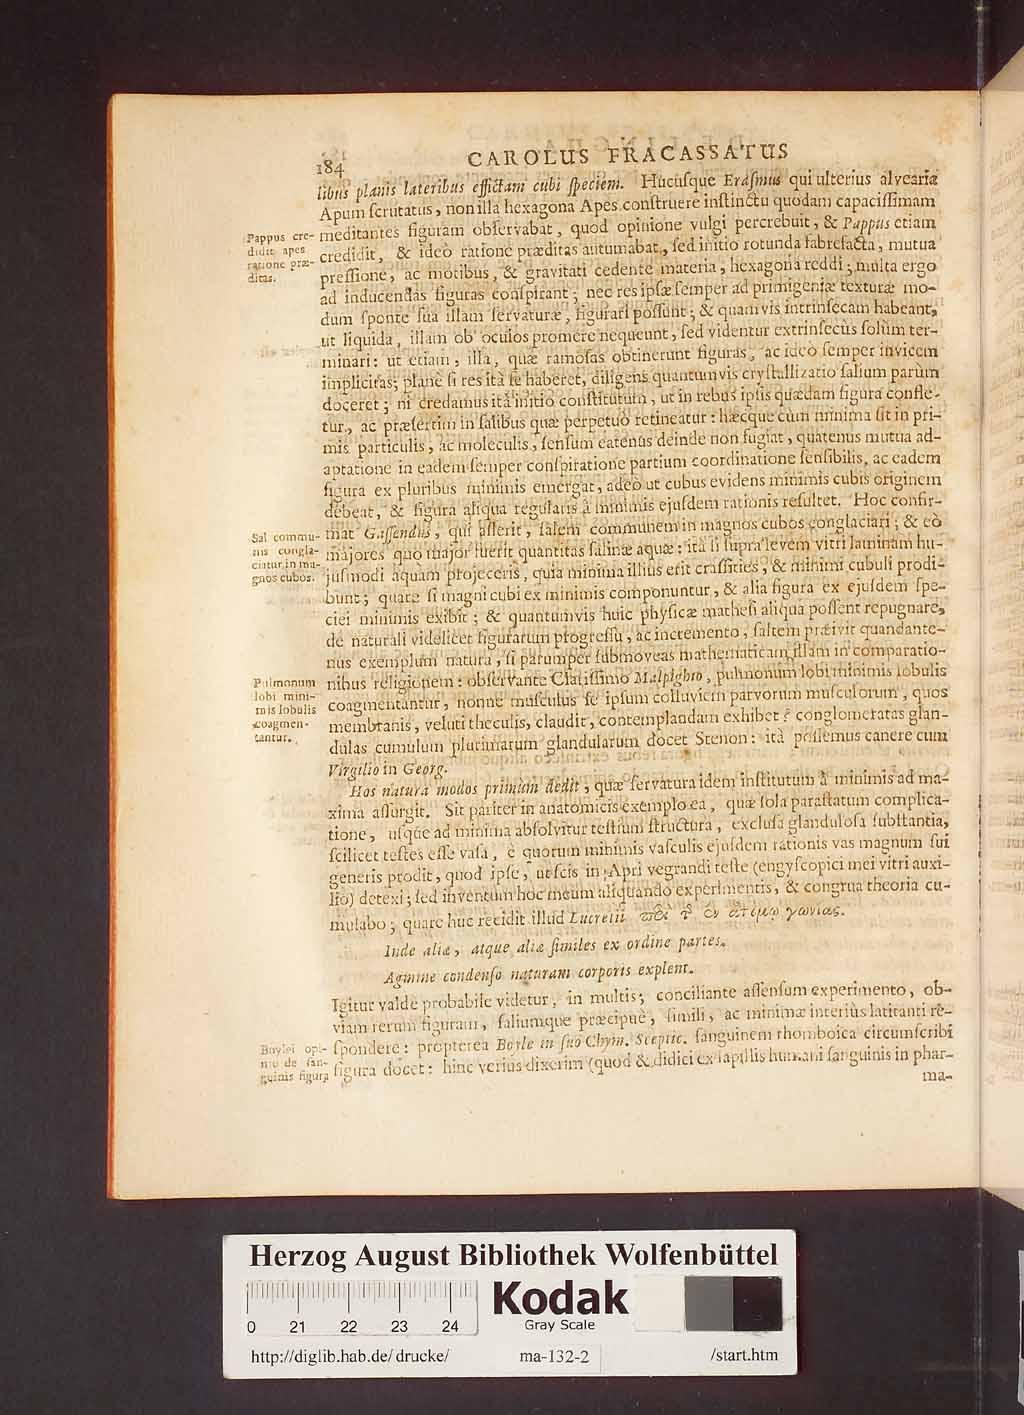 184
CAROLUS FRACASSATUS
libus planis lateribus effictam cubi ſpeciem. Hucuſque Eraſmus qui ulterius alvearia
Apum ſcrutatus, non illa hexagona Apes conſtruere inſtinctu quodam capaciſſimam
meditantes figuram obſervabat, quod opinione vulgi percrebuit, & Pappus etiam
credidit, & ideò ratione præditas autumabat, ſed initio rotunda fabrefacta, mutua
preſſione, ac motibus, & gravitati cedente materia, hexagona reddi; multa ergo
ad inducendas figuras conſpirant; nec res ipſæ ſemper ad primigeniæ texturæ mo-
dum ſponte ſua illam ſervaturæ, figurari poſſunt; & quamvis intrinſecam habeant,
ut liquida, illam ob oculos promere nequeunt, ſed videntur extrinſecùs ſolùm ter-
minari: ut etiam, illa, quæ ramoſas obtinerunt figuras, ac ideo ſemper invicem
implicitas; planè ſi res ità ſe haberet, diligens quantumvis cryſtallizatio ſalium parùm
doceret; ni credamus ità initio conſtitutum, ut in rebus ipſis quædam figura confle-
tur, ac præſertim in ſalibus quæ perpetuò retineatur: hæcque cùm minima ſit in pri-
mis particulis, ac moleculis, ſenſum eatenus deinde non fugiat, quatenus mutua ad-
aptatione in eadem ſemper conſpiratione partium coordinatione ſenſibilis, ac eadem
figura ex pluribus minimis emergat, adeò ut cubus evidens minimis cubis originem
debeat, & figura aliqua regularis à minimis ejuſdem rationis reſultet. Hoc confir-
mat Gaſſendus, qui aſſerit, ſalem communem in magnos cubos conglaciari; & eò
majores quo major fuerit quantitas ſalinæ aquæ: ità ſi ſupra levem vitri laminam hu-
juſmodi aquam projeceris, quia minima illius erit craſſities, & minimi cubuli prodi-
bunt; quare ſi magni cubi ex minimis componuntur, & alia figura ex ejuſdem ſpe-
ciei minimis exibit; & quantumvis huic phyſicæ matheſi aliqua poſſent repugnare,
de naturali videlicet figurarum progreſſu, ac incremento, ſaltem præivit quandante-
nus exemplum natura, ſi parumper ſubmoveas mathematicam illam in comparatio-
nibus religionem: obſervante Clariſſimo Malpighio, pulmonum lobi minimis lobulis
coagmentantur, nonne muſculus ſe ipſum colluviem parvorum muſculorum, quos
membranis, veluti theculis, claudit, contemplandam exhibet? conglomeratas glan-
dulas cumulum plurimarum glandularum docet Stenon: ità poſſemus canere cum
Virgilio in Georg.
Hos natura modos primùm dedit, quæ ſervatura idem inſtitutum à minimis ad ma-
xima aſſurgit. Sit pariter in anatomicis exemplo ea, quæ ſola paraſtatum complica-
tione, uſque ad minima abſolvitur teſtium ſtructura, excluſa glanduloſa ſubſtantia,
ſcilicet teſtes eſſe vaſa, è quorum minimis vaſculis ejuſdem rationis vas magnum ſui
generis prodit, quod ipſe, ut ſcis in Apri vegrandi teſte (engyſcopici mei vitri auxi-
lio) detexi; ſed inventum hoc meum aliquando experimentis, & congrua theoria cu-
mulabo; quare huc recidit illud Lucretii
Inde aliæ, atque aliæ ſimiles ex ordine partes,
Agmine condenſo naturam corporis explent.
Igitur valde probabile videtur, in multis; conciliante aſſenſum experimento, ob-
viam rerum figuram, ſaliumque præcipuè, ſimili, ac minimæ interiùs latitanti re-
ſpondere: propterea Boyle in ſuo Chym. Sceptic. ſanguinem rhomboica circumſcribi
figura docet: hinc verius dixerim (quod & didici ex lapillis humani ſanguinis in phar-
ma-
Pappus cre-
didit apes
ratione præ-
ditas.
Sal commu-
nis congla-
ciatur in ma-
gnos cubos.
Pulmonum
lobi mini-
mis lobulis
coagmen-
tantur.
Boylei opi-
nio de ſan-
guinis figura
Herzog August Bibliothek Wolfenbüttel
0 21 22 23 24
Kodak
Gray Scale
http://diglib.hab.de/drucke/ ma-132-2 /start.htm